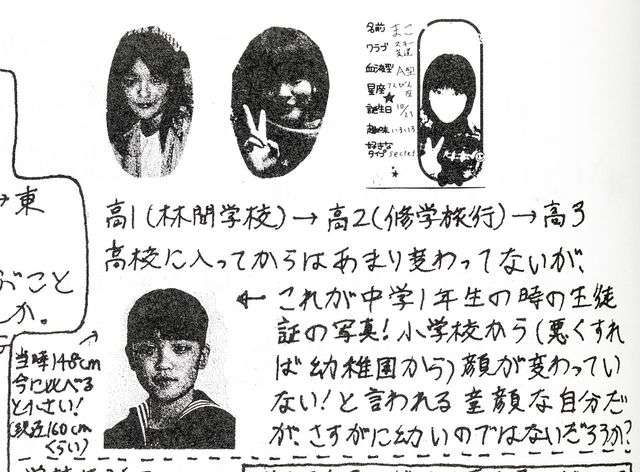 名前 まこ
クラブ スキー
血液型 A型
星座 てんびん座
誕生日
趣味 いろいろ
好きな
タイプ secret
→東
こと
か。
高1(林間学校)→高2(修学旅行)→高3
高校に入ってからはあまり変わってないが、
←これが中学1年生の時の生徒
証の写真!小学校から(悪くすれ
ば幼稚園から)顔が変わってい
ない!と言われる童顔な自分だ
が、さすがに幼いのではないだろうか?
当時148cm
今に比べる
と小さい!
(現在160cm
くらい)